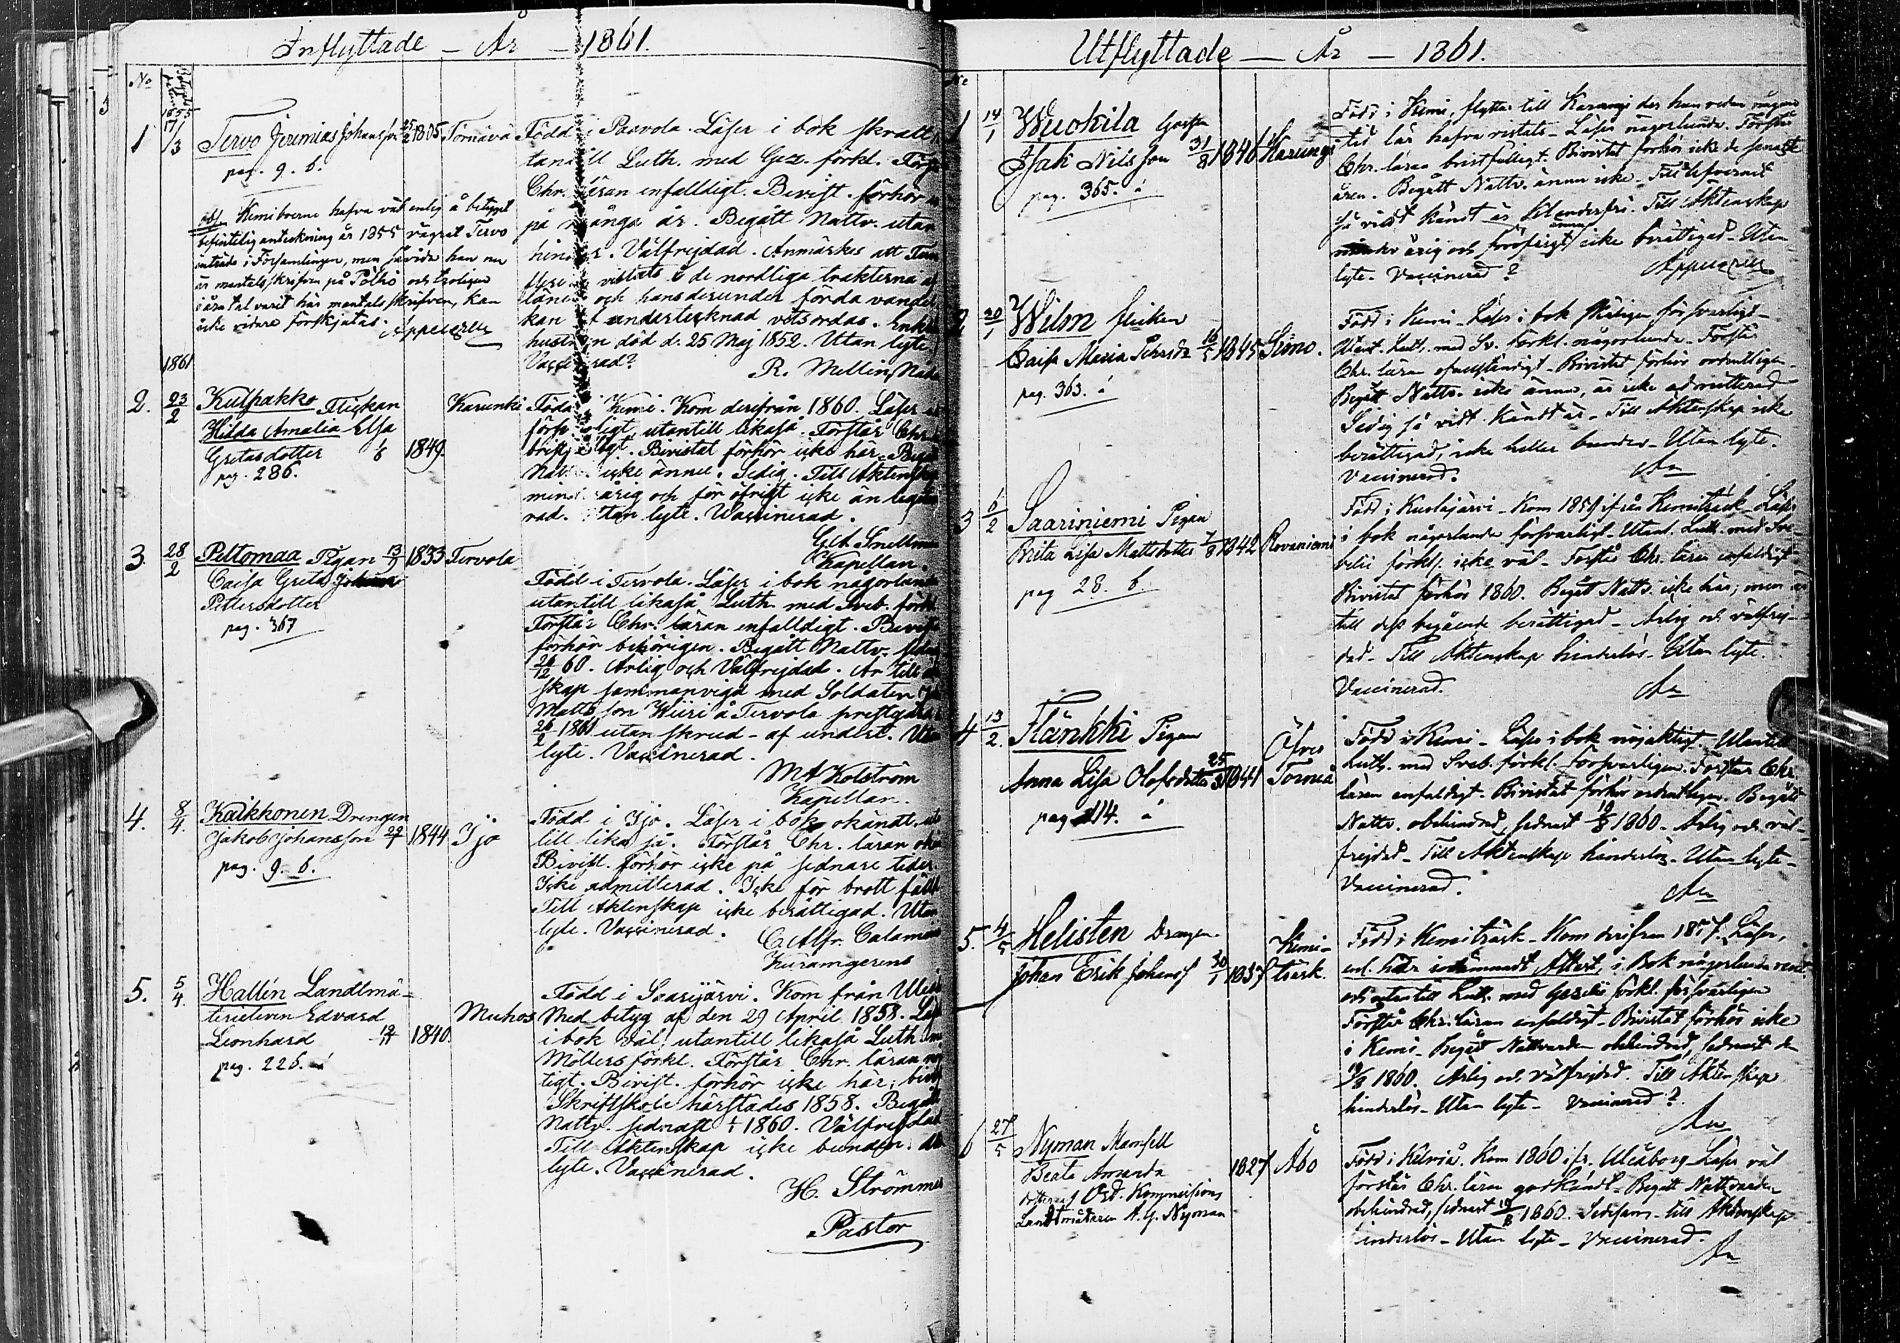 Inflyttade – År – 1861.
No
1 17/3 Tervo Jeremias Johansson 25/2 1805. Torneå
pag. 9. b.
Född i Paavola. Läser i bok skralt,
utantill Luth. med Gez. förkl. Förstår
Chr. läran enfalldigt. Bevist. förhör
på många år. Begått Nattv. utan
hinder. Välfrejdad. Anmärkes att Tervo
vistats i de nordliga trakterna af
länet och hans derunder förda vandel
kan af undertecknad vitsordas. Enkl.
hustrun död d. 25 Maj 1852. Utan lyte.
Vaccinerad?
R. Mellin
obs. Kemiboerne hafva väl enlig å betyget
befintelig anteckning år 1855 vägrat Tervo
inträde i Församlingen, men såvida han nu
är mantalsskrifven på och troligen
i åratal varit här mantalsskrifven, kan
icke vidare förskjutas. Appelgren
1861
2. 23/2 Kulpakko Flickan Karunki
Hilda Amalia Elsa
Gretasdotter 1849.
pag. 286.
Född i Kemi. Kom derifrån 1860. Läser
försvarligt, utantill likaså. Förstår Chr.
bristfälligt. Bevistat förhör icke här. Begått
Nattv. icke ännu. Ledig. Till Äktenskap
minderårig och för öfrigt icke än legiti-
rad. Utan lyte. Vaccinerad.
Snellman
Kapellan.
3 28/2 Peltomaa Pigan 13/9 1833 Tervola
Caisa Greta
Pettersdotter
pag. 367
Född i Tervola. Läser i bok någorlunda
utantill likaså Luth. med Sveb. förkl.
Förstår Chr. läran enfalldigt. Bevist.
förhör behörigen. Begått Nattv. sednast
26/12 60. Ärlig och Välfrejdad. Är till äkten-
skap sammanvigd med Soldaten
Mattsson Kiiri å Tervola prestgård
1861 utan skrud – af undert. Utan
lyte. Vaccinerad.
M A Kolström
Kapellan.
4. 8/4. Kaikkonen Drengen
Jakob Johansson 1844 Ijo
pag. 9. b.
Född i Ijo. Läser i bok okändt, utan-
till likaså. Förstår Chr. läran
Bevist. förhör icke på sednare tider.
Icke admitterad. Icke för brott fälld.
Till Äktenskap icke berättigad. Utan
lyte. Vaccinerad.
C. Alfr. Calamnius
5. 5/4 Hallén Landtmä-
terieleven Edvard Muhos
Leonhard 1840.
pag. 226.
Född i Saarijärvi. Kom från Uleå
med betyg af den 29 April 1858. Läser
i bok väl, utantill likaså Luth. m.
Möllers förkl. Förstår Chr. läran
Bevist. förhör icke här; bevist.
Skriftskola härstädes 1858. Begått
Nattv. sednast 1860. Välfrejdad
Till Äktenskap icke bunden. Utan
lyte. Vaccinerad.
H. Strömmer
Pastor
Utflyttade – År – 1861.
No
1 14/1 Wuokila Gosse
Isak Nilsson 31/8 1846 Karungi
pag. 365.
Född i Kemi, flyttar till Karungi der han redan någon
tid lär hafva vistats – Läser någorlunda. Förstår
Chr. läran bristfälligt. Bivistat förhör icke de senaste
åren. Begått Nattv. ännu icke –
så vidt kändt är Till Äktenskap
icke berättigad – Utan
lyte – Vaccinerad?
Appelgren
2 20/1 Wilm flickan
Caisa Maria 1845 Simo.
pag. 363.
Född i Kemi – Läser i bok försvarligt –
Utant. Luth. med Sv. förkl. någorlunda – Förstår
Chr. läran – Bivistat förhör ordentligen –
Begått Nattv. icke ännu, är icke admitterad –
Ledig så vidt kändt är – Till Äktenskap icke
berättigad, icke heller bunden – Utan lyte –
Vaccinerad.
3 6/2 Saariniemi Pigan
Brita Lisa Mattsdotter 1842 Rovaniemi
pag 28. b.
Född i Kuolajärvi – Kom 1859 ifrån Kemiträsk – Läser
i bok någorlunda försvarligt – Utant. Luth. med Sve-
belii förkl. icke väl – Förstår Chr. läran enfaldigt –
Bivistat förhör 1860. Begått Nattv. icke här; men är
till dess begående berättigad – Ärlig och välfrej-
dad – Till Äktenskap hinderlös – Utan lyte.
Vaccinerad.
4 13/2. Flänkki Pigan
Anna Lisa Olofsdotter 1841 Öfver Torneå
pag 114.
Född i Kemi – Läser i bok nöjaktigt – Utantill
Luth. med Sveb. förkl. försvarligen. Förstår Chr.
läran enfaldigt – Bivistat förhör ordentligen. Begått
Nattv. obehindrad, sednast 1860 – Ärlig och väl-
frejdad – Till Äktenskap hinderlös – Utan lyte –
Vaccinerad.
5. 4/5 Helisten Drengen
Johan Erik Johanss 30/1 1837 Kemi-
träsk.
Född i Kemiträsk – Kom derifrån 1857. Läser,
enl. här Attest, i Bok någorlunda rent
och utantill Luth. med Gezelii förkl. försvarligen
Förstår Chr. läran enfaldigt – Bivistat förhör icke
i Kemi – Begått Nattvarden obehindrad, sednast d.
1860. Ärlig och välfrejdad. Till Äktenskap
hinderlös – Utan lyte – Vaccinerad?
6 27/5 Nyman Mamsell
Beata Amanda 1827 Åbo
dotter af Ord. Kommissions
Landtmätaren A. G. Nyman
Född i Kelviå. Kom 1860 ifr. Uleåborg – Läser väl
förstår Chr. läran godkändt – Begått Nattvarden
obehindrad, sednast 1860. – till Äktenskap
hinderlös – Utan lyte – Vaccinerad.